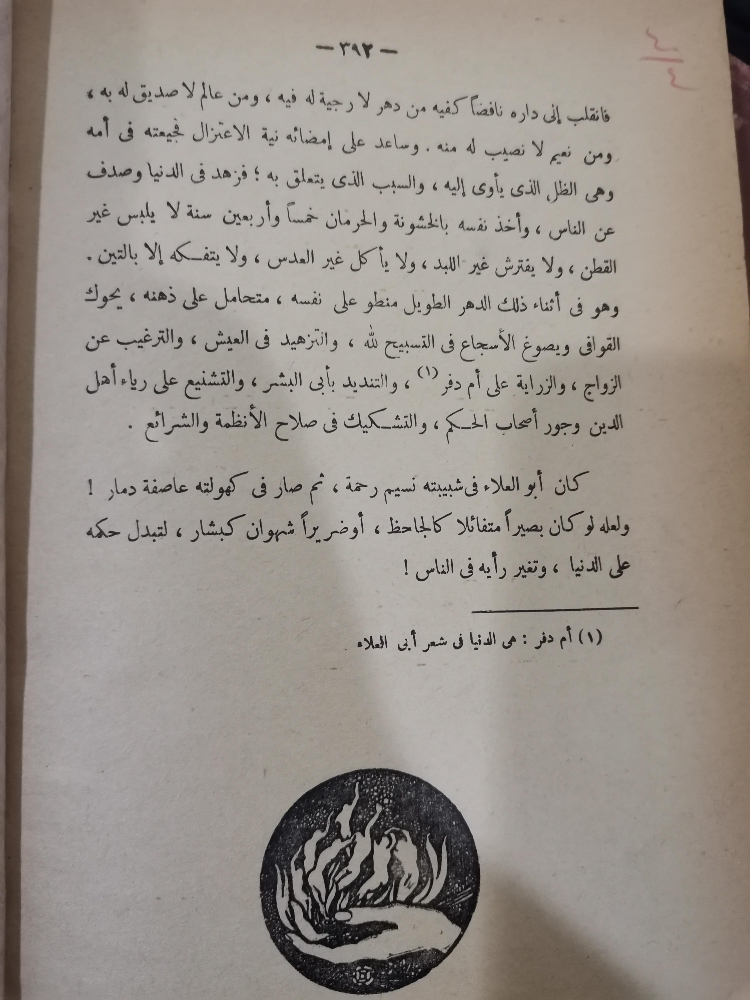 — ٣٩٢ —
فانقلب إلى داره نافضاً كفيه من دهر لا رجية له فيه ، ومن عالم لا صديق له به ،
ومن نعيم لا نصيب له منه . وساعد على إمضائه نية الاعتزال فجيعته فى أمه
وهى الظل الذى يأوى إليه ، والسبب الذى يتعلق به ؛ فزهد فى الدنيا وصدف
عن الناس ، وأخذ نفسه بالخشونة والحرمان خمساً وأربعين سنة لا يلبس غير
القطن ، ولا يفترش غير اللبد ، ولا يأكل غير العدس ، ولا يتفكه إلا بالتين .
وهو فى أثناء ذلك الدهر الطويل منطو على نفسه ، متحامل على ذهنه ، يحوك
القوافى ويصوغ الأسجاع فى التسبيح لله ، والتزهيد فى العيش ، والترغيب عن
الزواج ، والزراية على أم دفر (١) ، والتنديد بأبى البشر ، والتشنيع على رياء أهل
الدين وجور أصحاب الحكم ، والتشكيك فى صلاح الأنظمة والشرائع .
كان أبو العلاء فى شبيبته نسيم رحمة ، ثم صار فى كهولته عاصفة دمار !
ولعله لو كان بصيراً متفائلا كالجاحظ ، أو ضريراً شهوان كبشار ، لتبدل حكمه
على الدنيا ، وتغير رأيه فى الناس !
(١) أم دفر : هى الدنيا فى شعر أبى العلاء